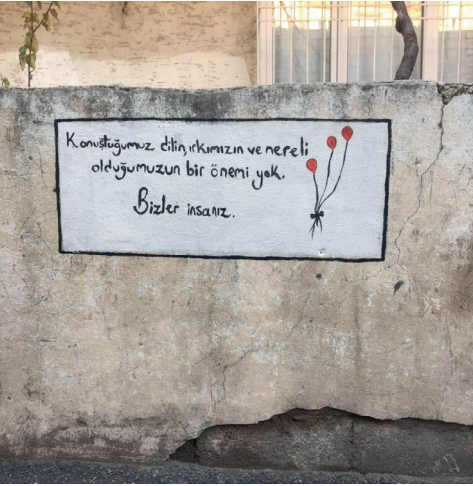 Konuştuğumuz dilin, ırkımızın ve nereli
olduğumuzun bir önemi yok.
Bizler insanız.